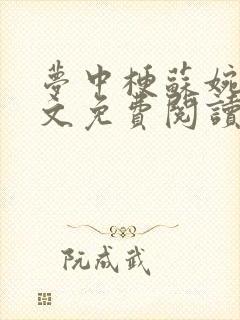 夢中梗蘇婉
文免費閱讀
阮成武